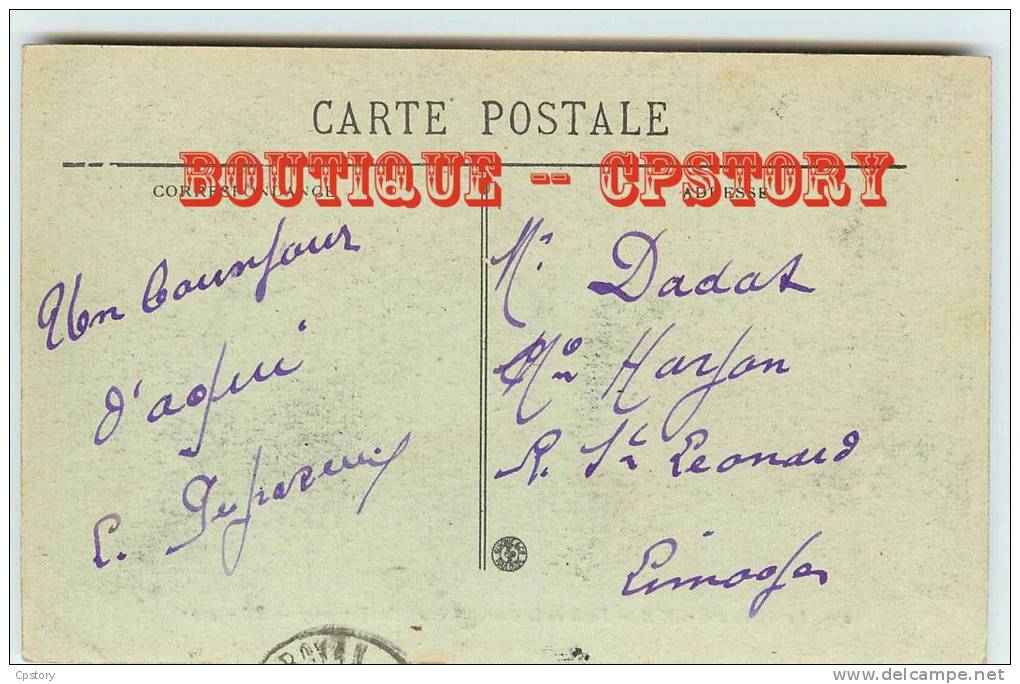 CARTE POSTALE
BOUTIQUE -- CPSTORY
CORRESPONDANCE
ADRESSE
Un bounjour
d'aqui
L.
Mr. Dadat
Mon Harjon
R. St Leonard
Limoges
Cpstory
www.delcampe.net